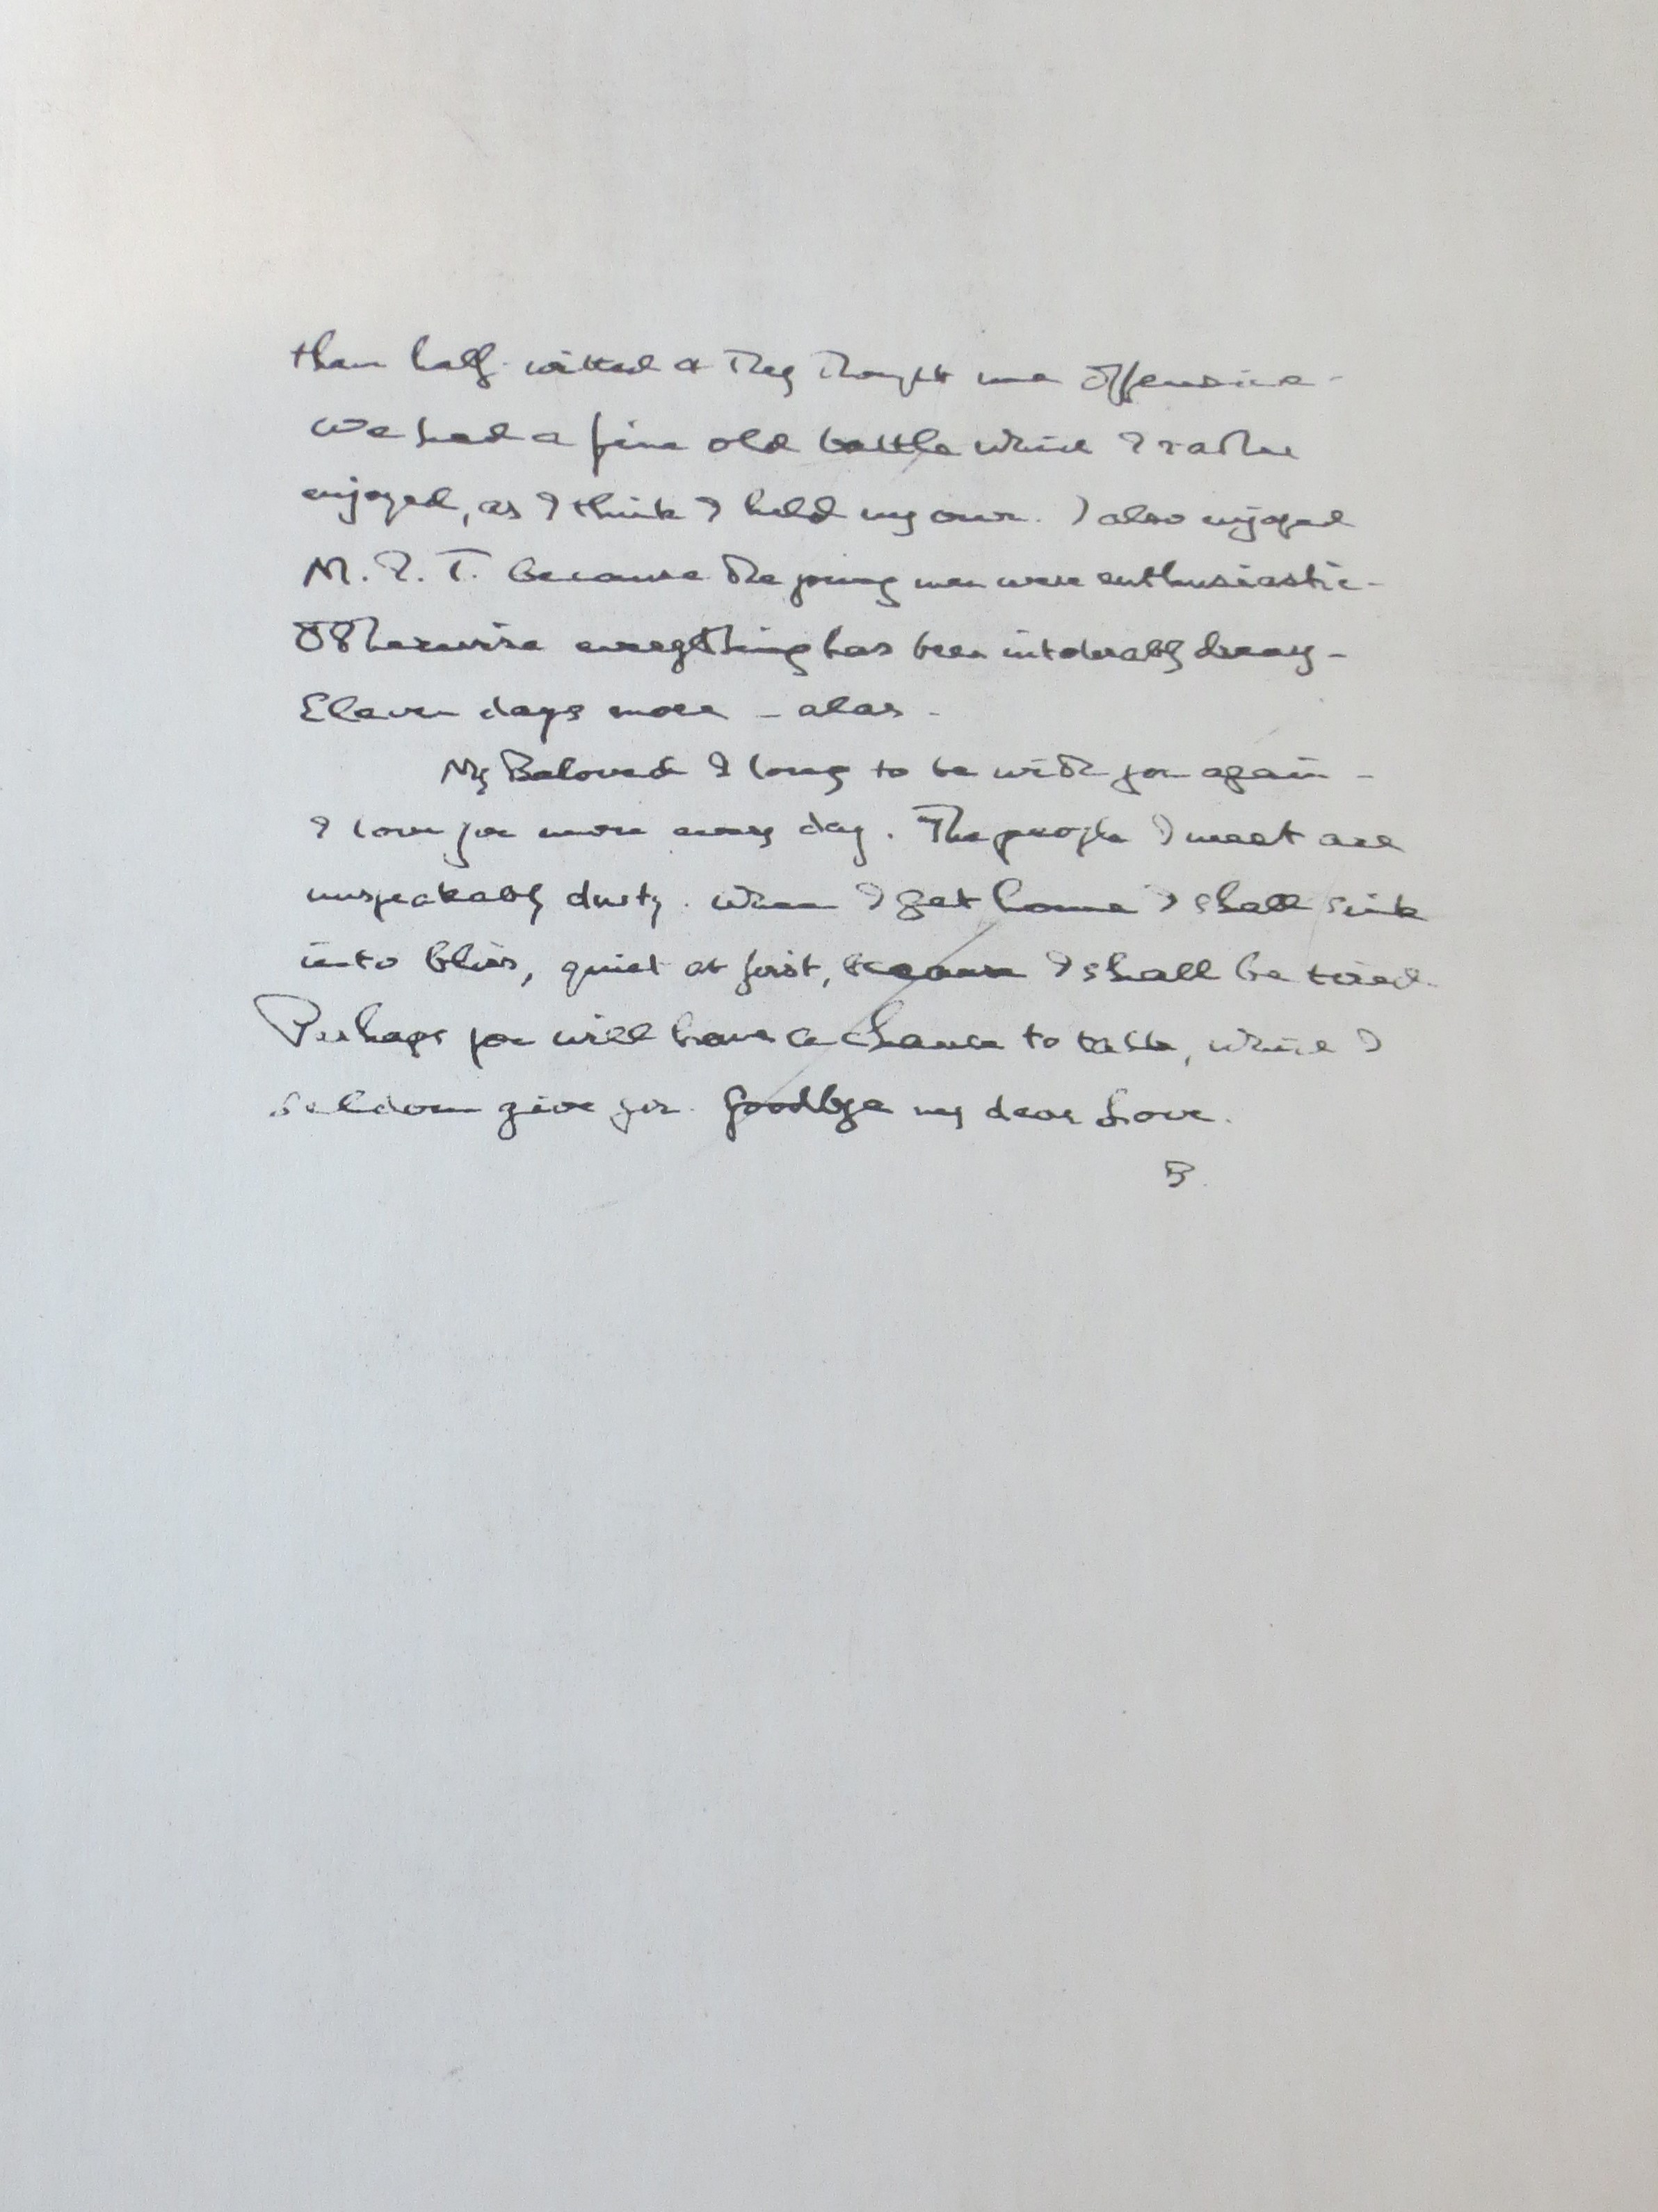 than half-witted & they thought me offensive -
We had a fine old battle which I rather
enjoyed, as I think I held my own. I also enjoyed
M.I.T. because the young men were enthusiastic -
Otherwise everything has been intolerably dreary -
Eleven days more - alas -
My Beloved I long to be with you again -
I love you more every day. The people I meet are
unspeakably dusty. When I get home I shall sink
into bliss, quiet at first, because I shall be tired.
Perhaps you will have a chance to talk, which I
seldom give you. Goodbye my dear Love.
B.